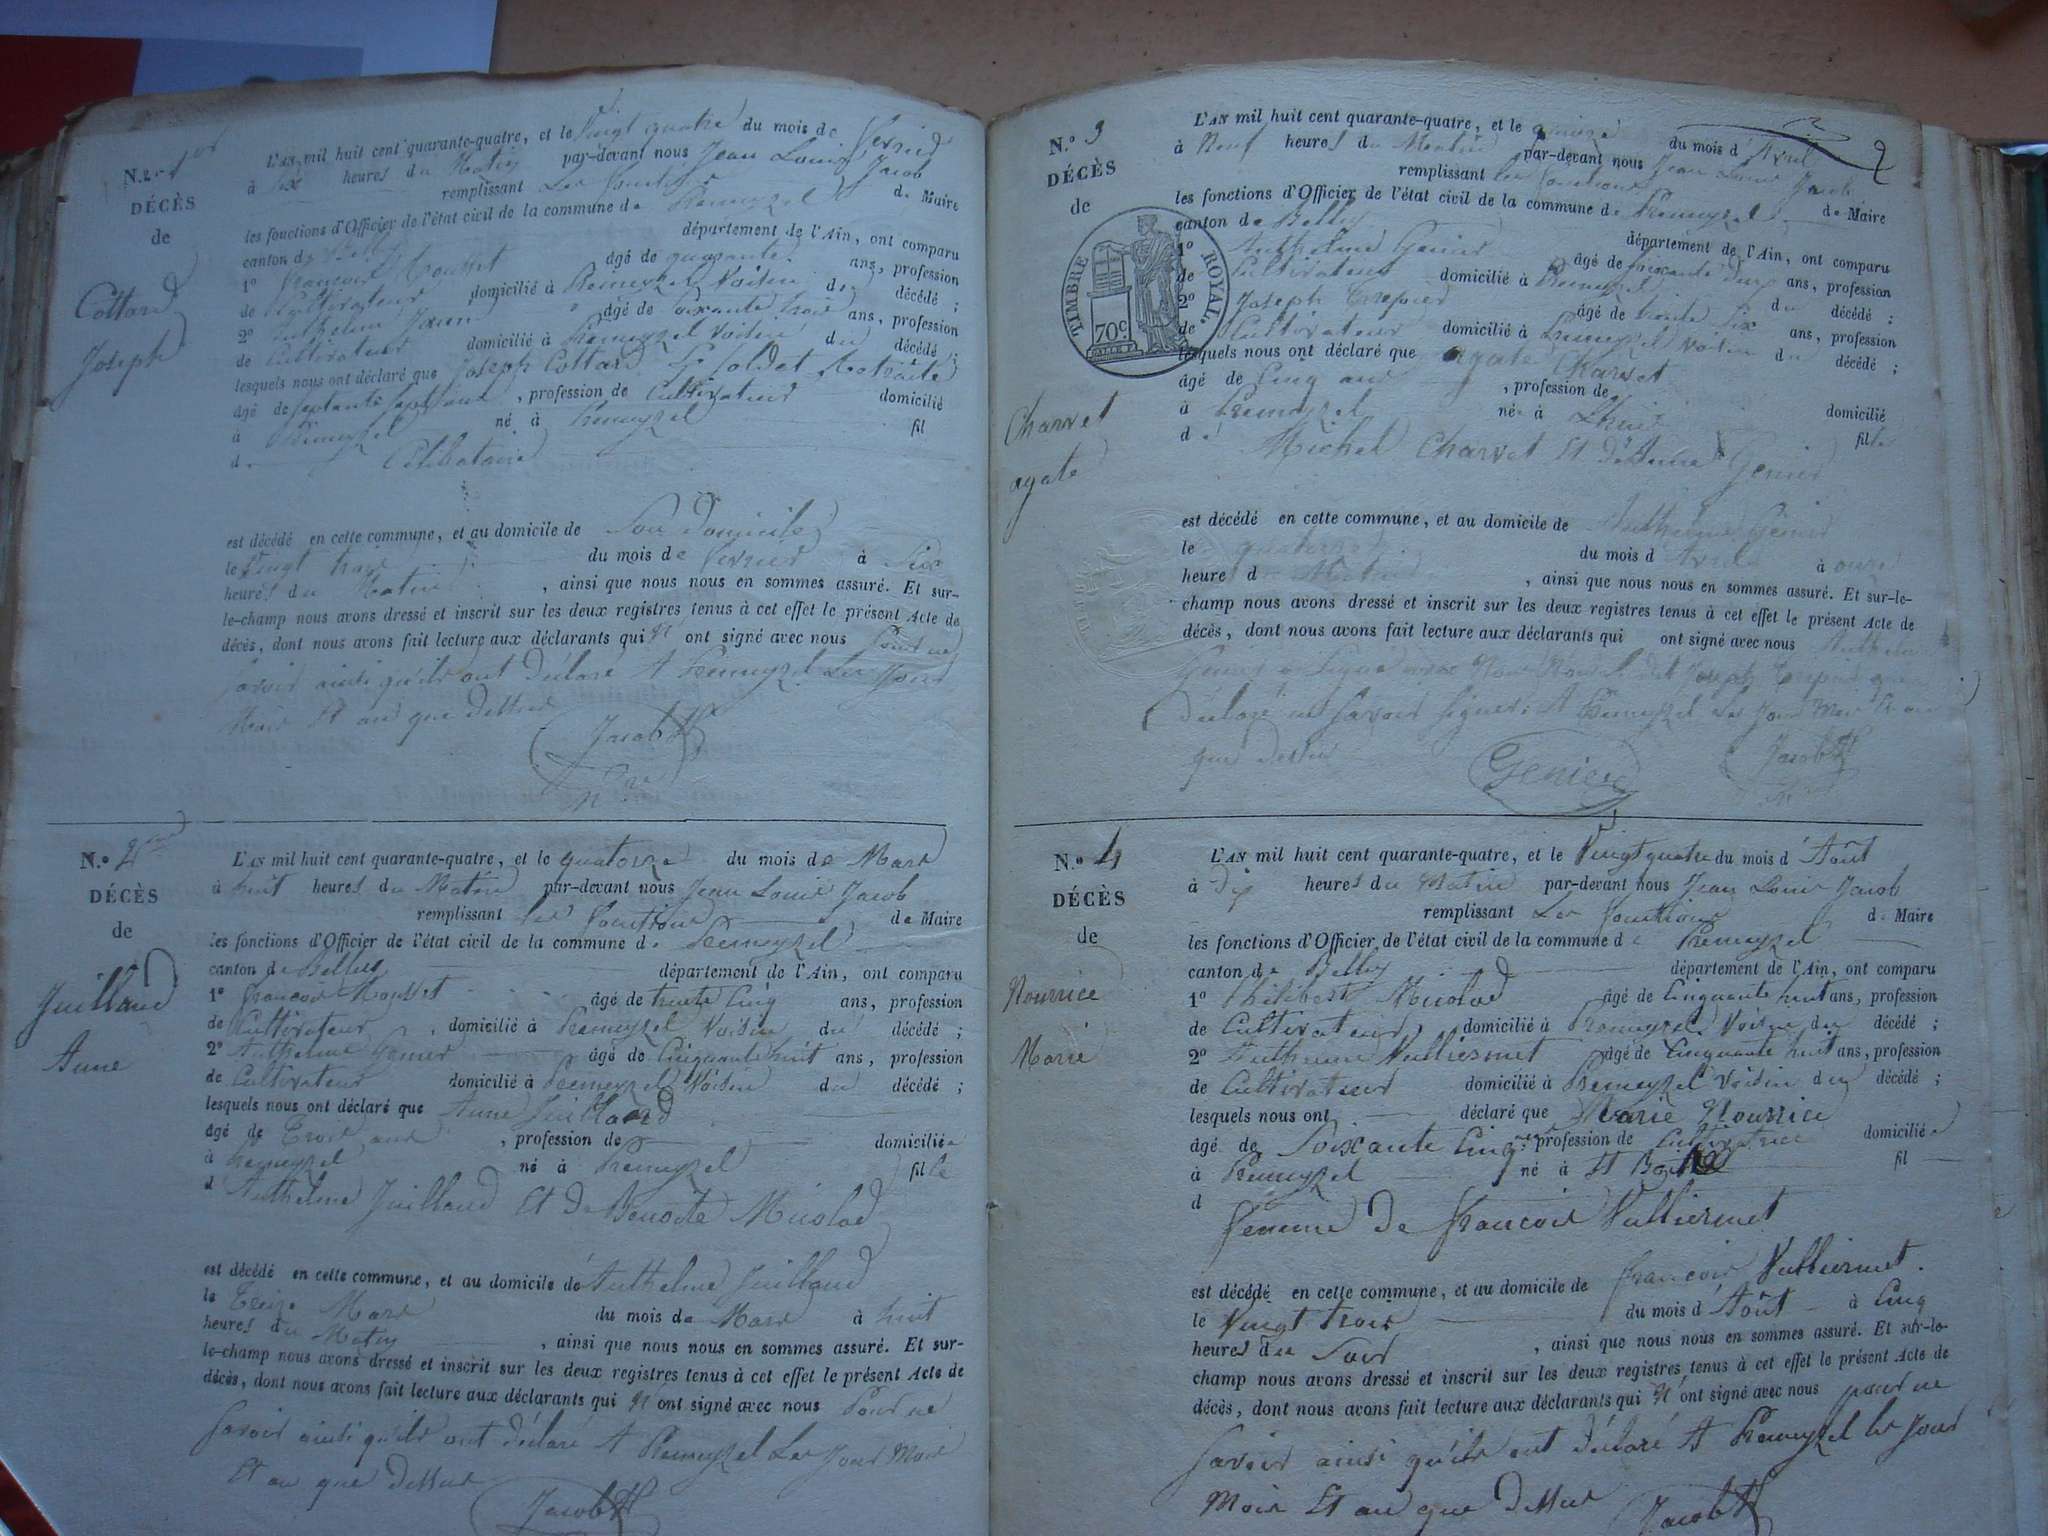 N.o 1er
DÉCÈS
de
Cottard
Joseph
L'AN mil huit cent quarante-quatre, et le Vingt quatre du mois de Fevrier
à Six heures du Matin par-devant nous Jean Louis Jacob
remplissant Les fonctions de Maire
les fonctions d'Officier de l'état civil de la commune de Premeyzel
canton de Belley département de l'Ain, ont comparu
1o francois Mousset âgé de quarante ans, profession
de Cultivateur domicilié à Premeyzel Voisin du décédé ;
2o Anthelme âgé de Soixante trois ans, profession
de Cultivateur domicilié à Premeyzel Voisin du décédé ;
lesquels nous ont déclaré que Joseph Cottard Soldat Retraité
âgé de septante sept ans, profession de Cultivateur domicilié
à Premeyzel né à Premeyzel fil
d Célibataire
est décédé en cette commune, et au domicile de Son Domicile
le Vingt trois du mois de Fevrier à Six
heures du Matin, ainsi que nous nous en sommes assuré. Et sur-
le-champ nous avons dressé et inscrit sur les deux registres tenus à cet effet le présent Acte de
décès, dont nous avons fait lecture aux déclarants qui N' ont signé avec nous Pour ne
savoir ainsi qu'ils ont déclaré A Premeyzel Les Jour
Mois Et an que Dessus
Jacob
N.o 2
DÉCÈS
de
Juilland
Anne
L'AN mil huit cent quarante-quatre, et le quatorze du mois de Mars
à huit heures du Matin par-devant nous Jean Louis Jacob
remplissant les fonctions de Maire
les fonctions d'Officier de l'état civil de la commune de Premeyzel
canton de Belley département de l'Ain, ont comparu
1o francois Mousset âgé de trente Cinq ans, profession
de Cultivateur, domicilié à Premeyzel Voisin du décédé ;
2o Anthelme Genier âgé de Cinquante huit ans, profession
de Cultivateur domicilié à Premeyzel Voisin du décédé ;
lesquels nous ont déclaré que Anne Juilland
âgé de Trois ans, profession de domiciliée
à Premeyzel né à Premeyzel fille
d'Anthelme Juilland Et De Benoite Micolod
est décédé en cette commune, et au domicile de Anthelme Juilland
le Treize Mars du mois de Mars à huit
heures du Matin, ainsi que nous nous en sommes assuré. Et sur-
le-champ nous avons dressé et inscrit sur les deux registres tenus à cet effet le présent Acte de
décès, dont nous avons fait lecture aux déclarants qui N' ont signé avec nous Pour ne
savoir ainsi qu'ils ont déclaré A Premeyzel Les Jour Mois
Et an que Dessus
Jacob
N.o 3
DÉCÈS
de
TIMBRE ROYAL
70c
Charvet
agate
L'AN mil huit cent quarante-quatre, et le quinze du mois d'Avril
à Neuf heures du Matin par-devant nous Jean Louis Jacob
remplissant les fonctions de Maire
les fonctions d'Officier de l'état civil de la commune de Premeyzel
canton de Belley département de l'Ain, ont comparu
1o Anthelme Genier âgé de ans, profession
de Cultivateur domicilié à Premeyzel du décédé ;
2o Joseph âgé de trente Six ans, profession
de Cultivateur domicilié à Premeyzel Voisin du décédé ;
lesquels nous ont déclaré que agate Charvet
âgé de Cinq ans, profession de domicilié
à Premeyzel née à fille
de Michel Charvet Et De Genier
est décédé en cette commune, et au domicile de Anthelme Genier
le quatorze du mois d'Avril à onze
heures du Matin, ainsi que nous nous en sommes assuré. Et sur-le-
champ nous avons dressé et inscrit sur les deux registres tenus à cet effet le présent Acte de
décès, dont nous avons fait lecture aux déclarants qui ont signé avec nous Anthelme
Genier a Signé avec Nous Joseph
Déclaré ne savoir signer. A Premeyzel Les Jour Mois Et an
que dessus
Genier Jacob
N.o 4
DÉCÈS
de
Nourrice
Marie
L'AN mil huit cent quarante-quatre, et le Vingt quatre du mois d'Août
à Dix heures du Matin par-devant nous Jean Louis Jacob
remplissant Les fonctions de Maire
les fonctions d'Officier de l'état civil de la commune de Premeyzel
canton de Belley département de l'Ain, ont comparu
1o Philibert Micolod âgé de Cinquante huit ans, profession
de Cultivateur domicilié à Premeyzel Voisin du décédé ;
2o Anthelme Vulliermet âgé de Cinquante huit ans, profession
de Cultivateur domicilié à Premeyzel Voisin du décédé ;
lesquels nous ont déclaré que Marie Nourrice
âgé de Soixante Cinq ans, profession de Cultivatrice domiciliée
à Premeyzel né à St Bois fil
d
femme De francois Vulliermet
est décédé en cette commune, et au domicile de francois Vulliermet.
le Vingt trois du mois d'Août à Cinq
heures du Soir, ainsi que nous nous en sommes assuré. Et sur-le-
champ nous avons dressé et inscrit sur les deux registres tenus à cet effet le présent Acte de
décès, dont nous avons fait lecture aux déclarants qui N' ont signé avec nous pour ne
savoir ainsi qu'ils ont déclaré A Premeyzel les Jour
Mois Et an que Dessus
Jacob